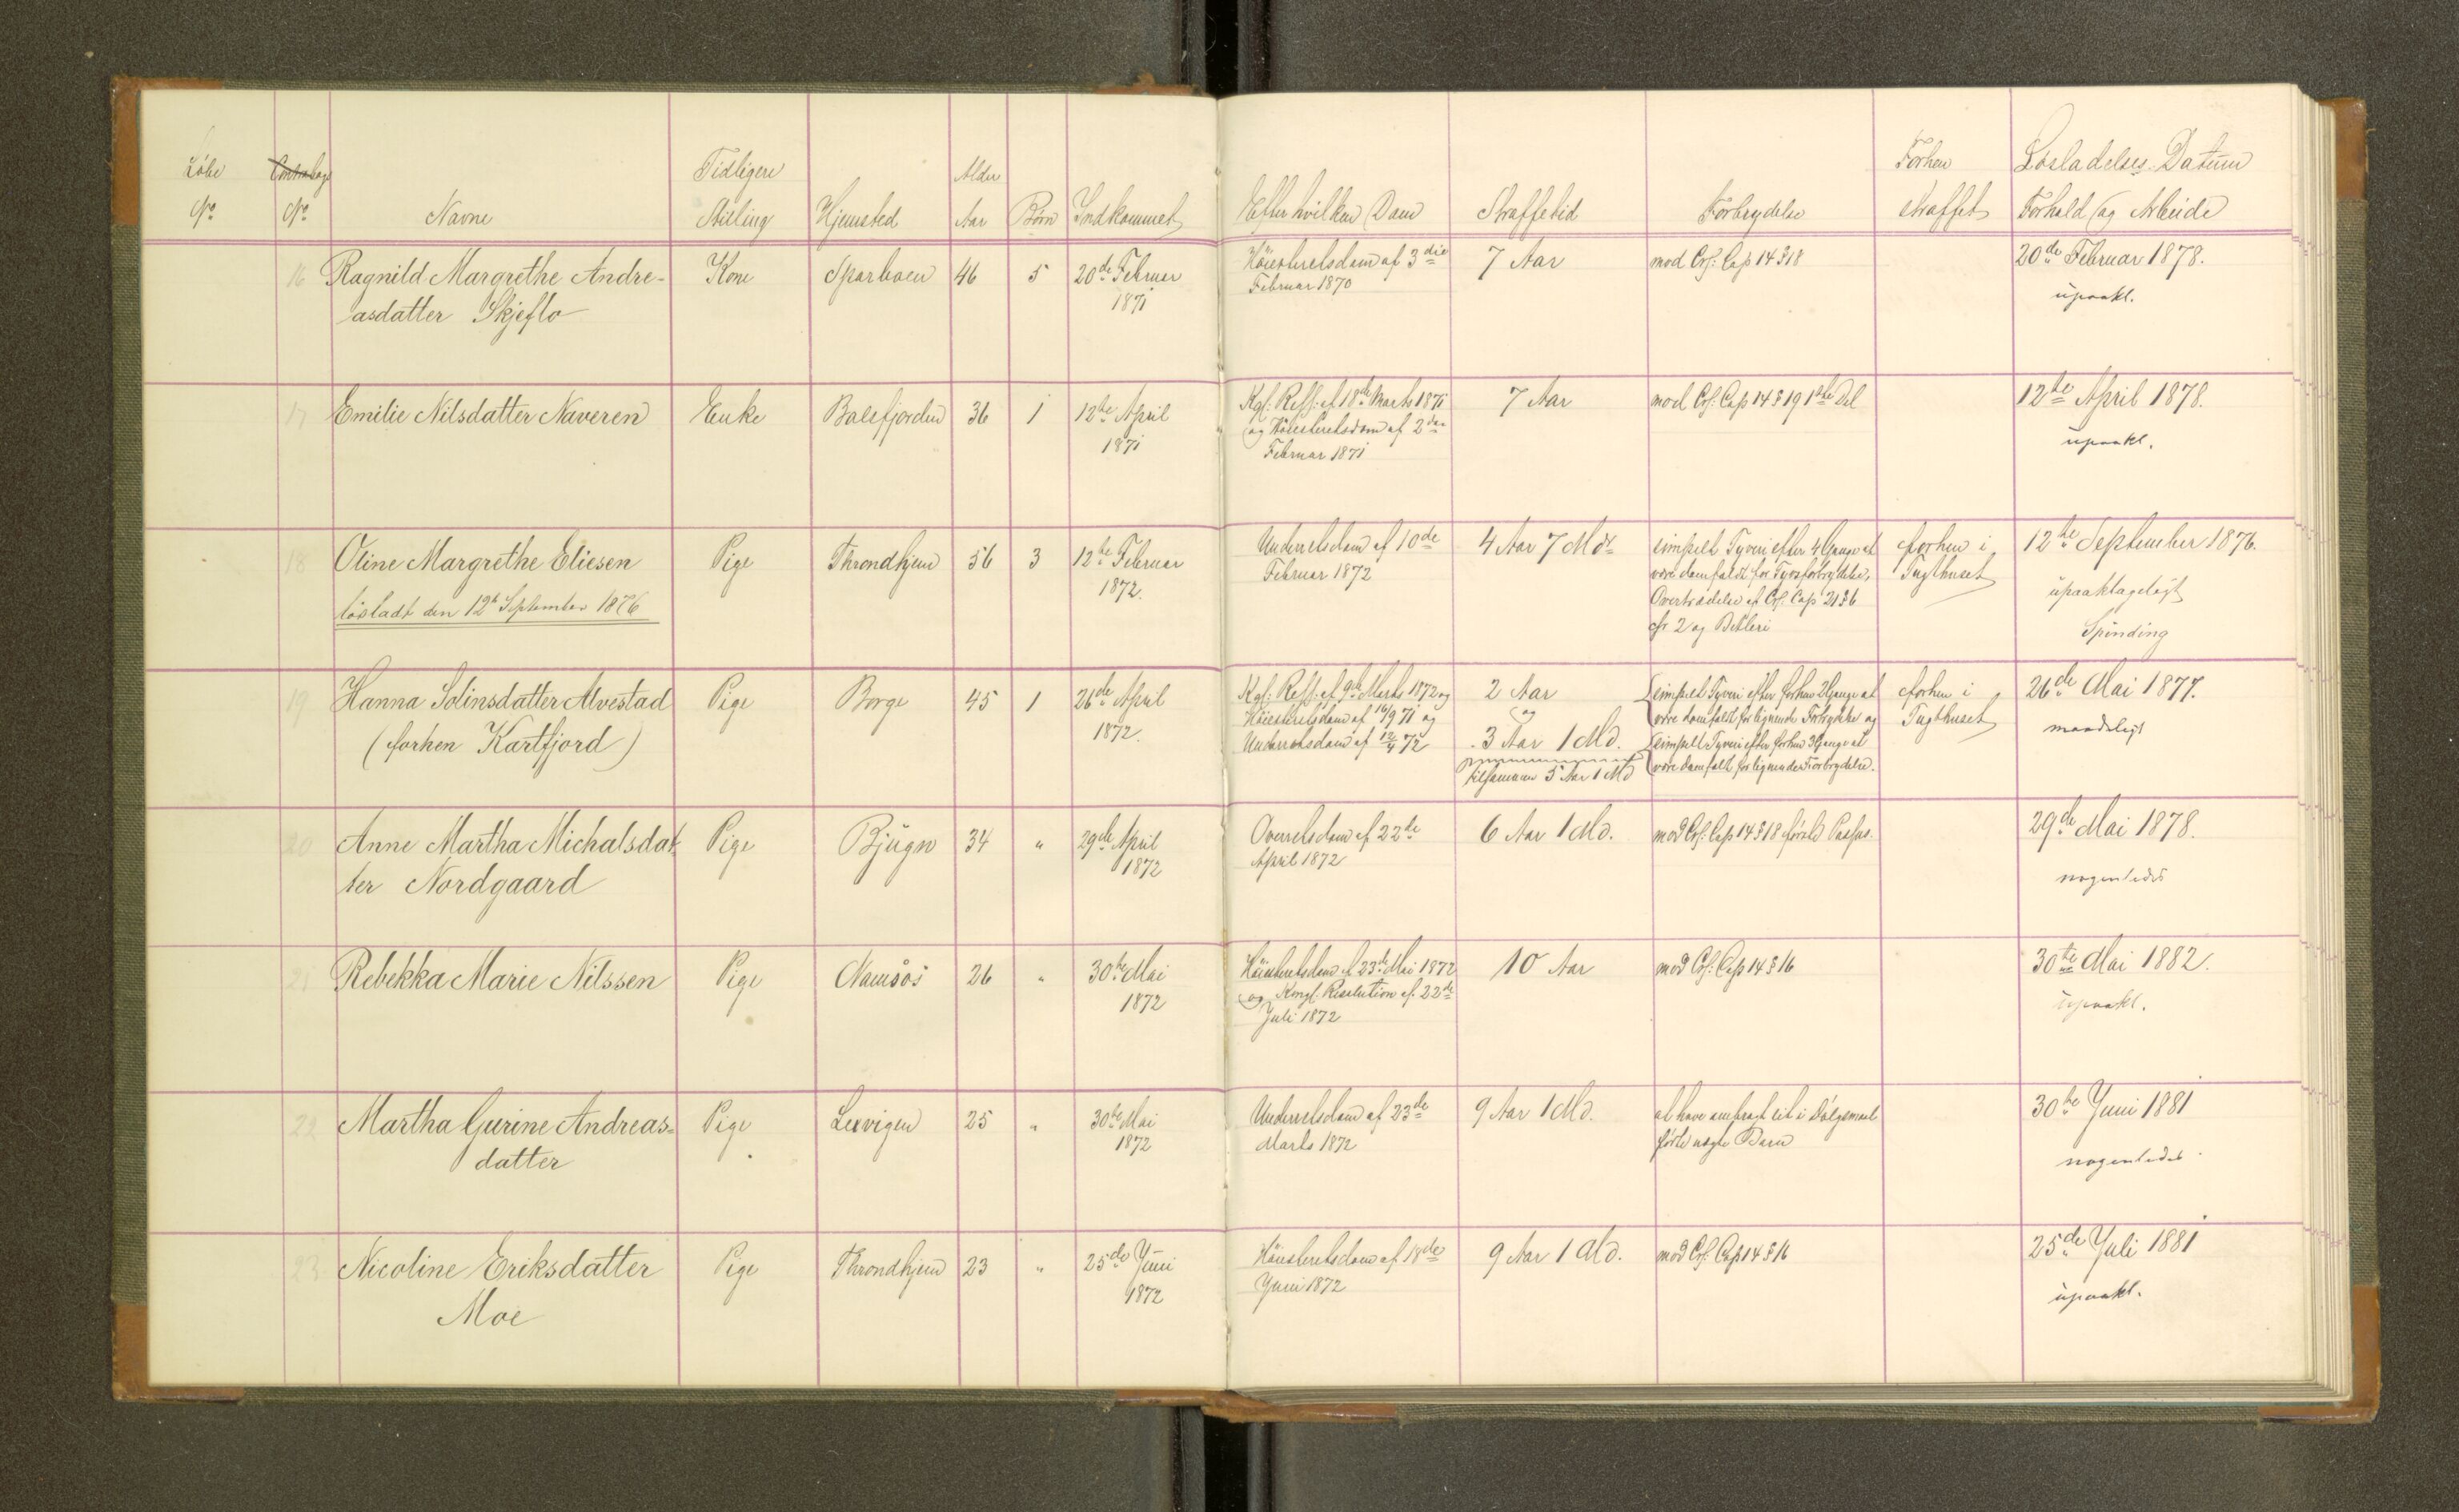 Løbe
No
No
Navne
Tidligere
Stilling
Hjemsted
Alder
Aar
Børn
Indkommet
Efter hvilken Dom
Straffetid
Forbrydelse
Forhen
straffet
Løsladelses Datum
Forhold og Arbeide
16
Ragnild Margrethe Andre-
asdatter Skjeflo
Kone
Sparboen
46
5
20de Februar
1871
Høiesteretsdom af 3die
Februar 1870
7 Aar
mod Crl: Cap 14 § 18
20de Februar 1878.
upaakl.
17
Emilie Nilsdatter Naveren
Enke
Balsfjorden
36
1
12te April
1871
Kgl: Resl: af 18de Marts 1871
og Høiesteretsdom af 2den
Februar 1871
7 Aar
mod Crl: Cap 14 § 19 1ste Del
12te April 1878.
upaakl.
18
Oline Margrethe Eliesen
løsladt den 12te September 1876
Pige
Throndhjem
56
3
12te Februar
1872.
Underretsdom af 10de
Februar 1872
4 Aar 7 Mdr
simpelt Tyveri efter 4 Gange at
være domfældt for Tyvsforbrydelse,
Overtrædelse af Crl. Cap 21 § 6
cfr 2 og Betleri
forhen i
Tugthuset
12te September 1876.
upaaklageligt
Spinding
19
Hanna Solinsdatter Alvestad
(forhen Kartfjord)
Pige
Borge
45
1
26de April
1872.
Kgl: Resl: af 9de Marts 1872 og
Høiesteretsdom af 16/9 71 og
Underretsdom af 12/4 72
2 Aar
og
3 Aar 1 Md.
tilsammen 5 Aar 1 Md
simpelt Tyveri efter forhen 2 Gange at
være domfældt for lignende Forbrydelse og
simpelt Tyveri efter forhen 3 Gange at
være domfældt for lignende Forbrydelse.
forhen i
Tugthuset
26de Mai 1877.
20
Anne Martha Michalsdat
ter Nordgaard
Pige
Bjugn
34
"
29de April
1872
Overretsdom af 22de
April 1872
6 Aar 1 Md.
mod Crl: Cap 14 § 18 første Passus.
29de Mai 1878.
nogenledes
21
Rebekka Marie Nilssen
Pige
Namsos
26
"
30te Mai
1872
Høiesteretsdom af 23de Mai 1872
og Kongl: Resolution af 22de
Juli 1872
10 Aar
mod Crl: Cap 14 § 16
30te Mai 1882.
upaakl.
22
Martha Gurine Andreas=
datter
Pige
Lexvigen
25
"
30te Mai
1872
Underretsdom af 23de
Marts 1872
9 Aar 1 Md.
at have ombragt sit i Dølgsmaal
fødte uægte Barn
30te Juni 1881
nogenledes
23
Nicoline Eriksdatter
Moe
Pige
Throndhjem
23
"
25de Juni
1872
Høiesteretsdom af 18de
Juni 1872
9 Aar 1 Md.
mod Crl. Cap 14 § 16
25de Juli 1881
upaakl.